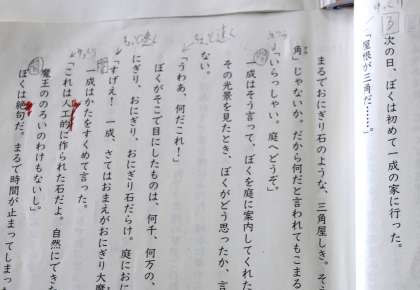 次の日、ぼくは初めて一成の家に行った。
「屋根が三角だ……。」
まるでおにぎり石のような、三角屋しき。そ
角」じゃないか。だから何だと言われてもこまる
「いらっしゃい。庭へどうぞ。」
一成はそう言って、ぼくを庭に案内してくれた
その光景を見たとき、ぼくがどう思ったか、言
ない。
「うわあ、何だこれ!」
ぼくがそこで目にしたものは、何千、何万の、
にぎり、おにぎり、おにぎり石だらけ。庭にお
「げげえ! 一成、さてはおまえがおにぎり大魔
一成はかたをすくめて言った。
「これは人工的に作られた石だよ。自然にでき
魔王ののろいのわけもないし。」
ぼくは絶句だ。まるで時間が止まってしまっ